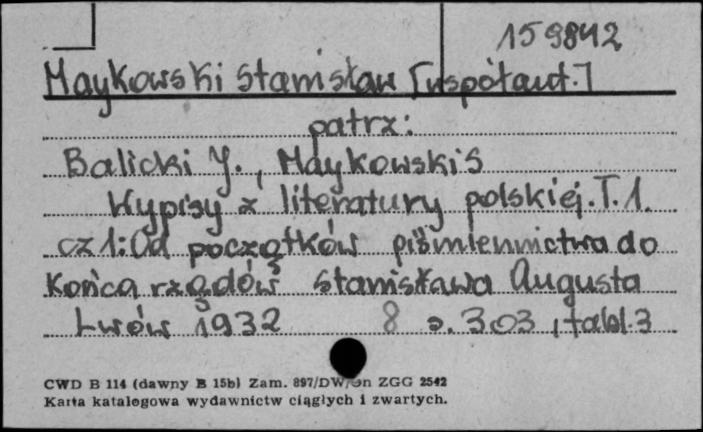 159842
Maykowski Stanisław [współaut.]
patrz:
Balicki J., Maykowski S
Wypisy z literatury polskiej. T. 1.
cz 1: Od początków piśmiennictwa do
końca rządów Stanisława Augusta
Lwów 1932 8 s. 303, tabl. 3
CWD B 114 (dawny B 15b) Zam. 897/DW/Dn ZGG 2542
Karta katalogowa wydawnictw ciągłych i zwartych.